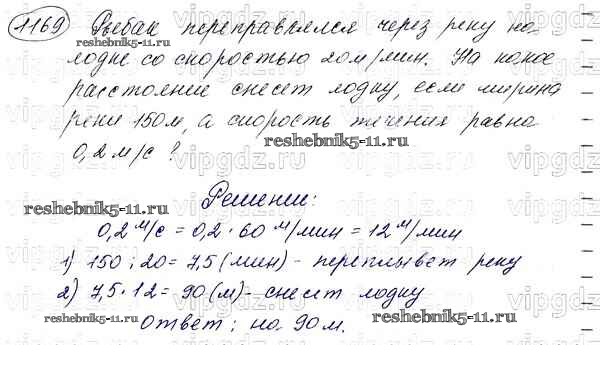 1169 Рыбак переправлялся через реку на
лодке со скоростью 20 м/мин. На какое
расстояние снесет лодку, если ширина
реки 150 м, а скорость течения равна
0,2 м/с ?
Решение:
0,2 м/с = 0,2 · 60 м/мин = 12 м/мин
1) 150 : 20 = 7,5 (мин) - переплывет реку
2) 7,5 · 12 = 90 (м) - снесет лодку
Ответ: на 90 м.
reshebnik5-11.ru
reshebnik5-11.ru
reshebnik5-11.ru
reshebnik5-11.ru
reshebnik5-11.ru
vipgdz.ru